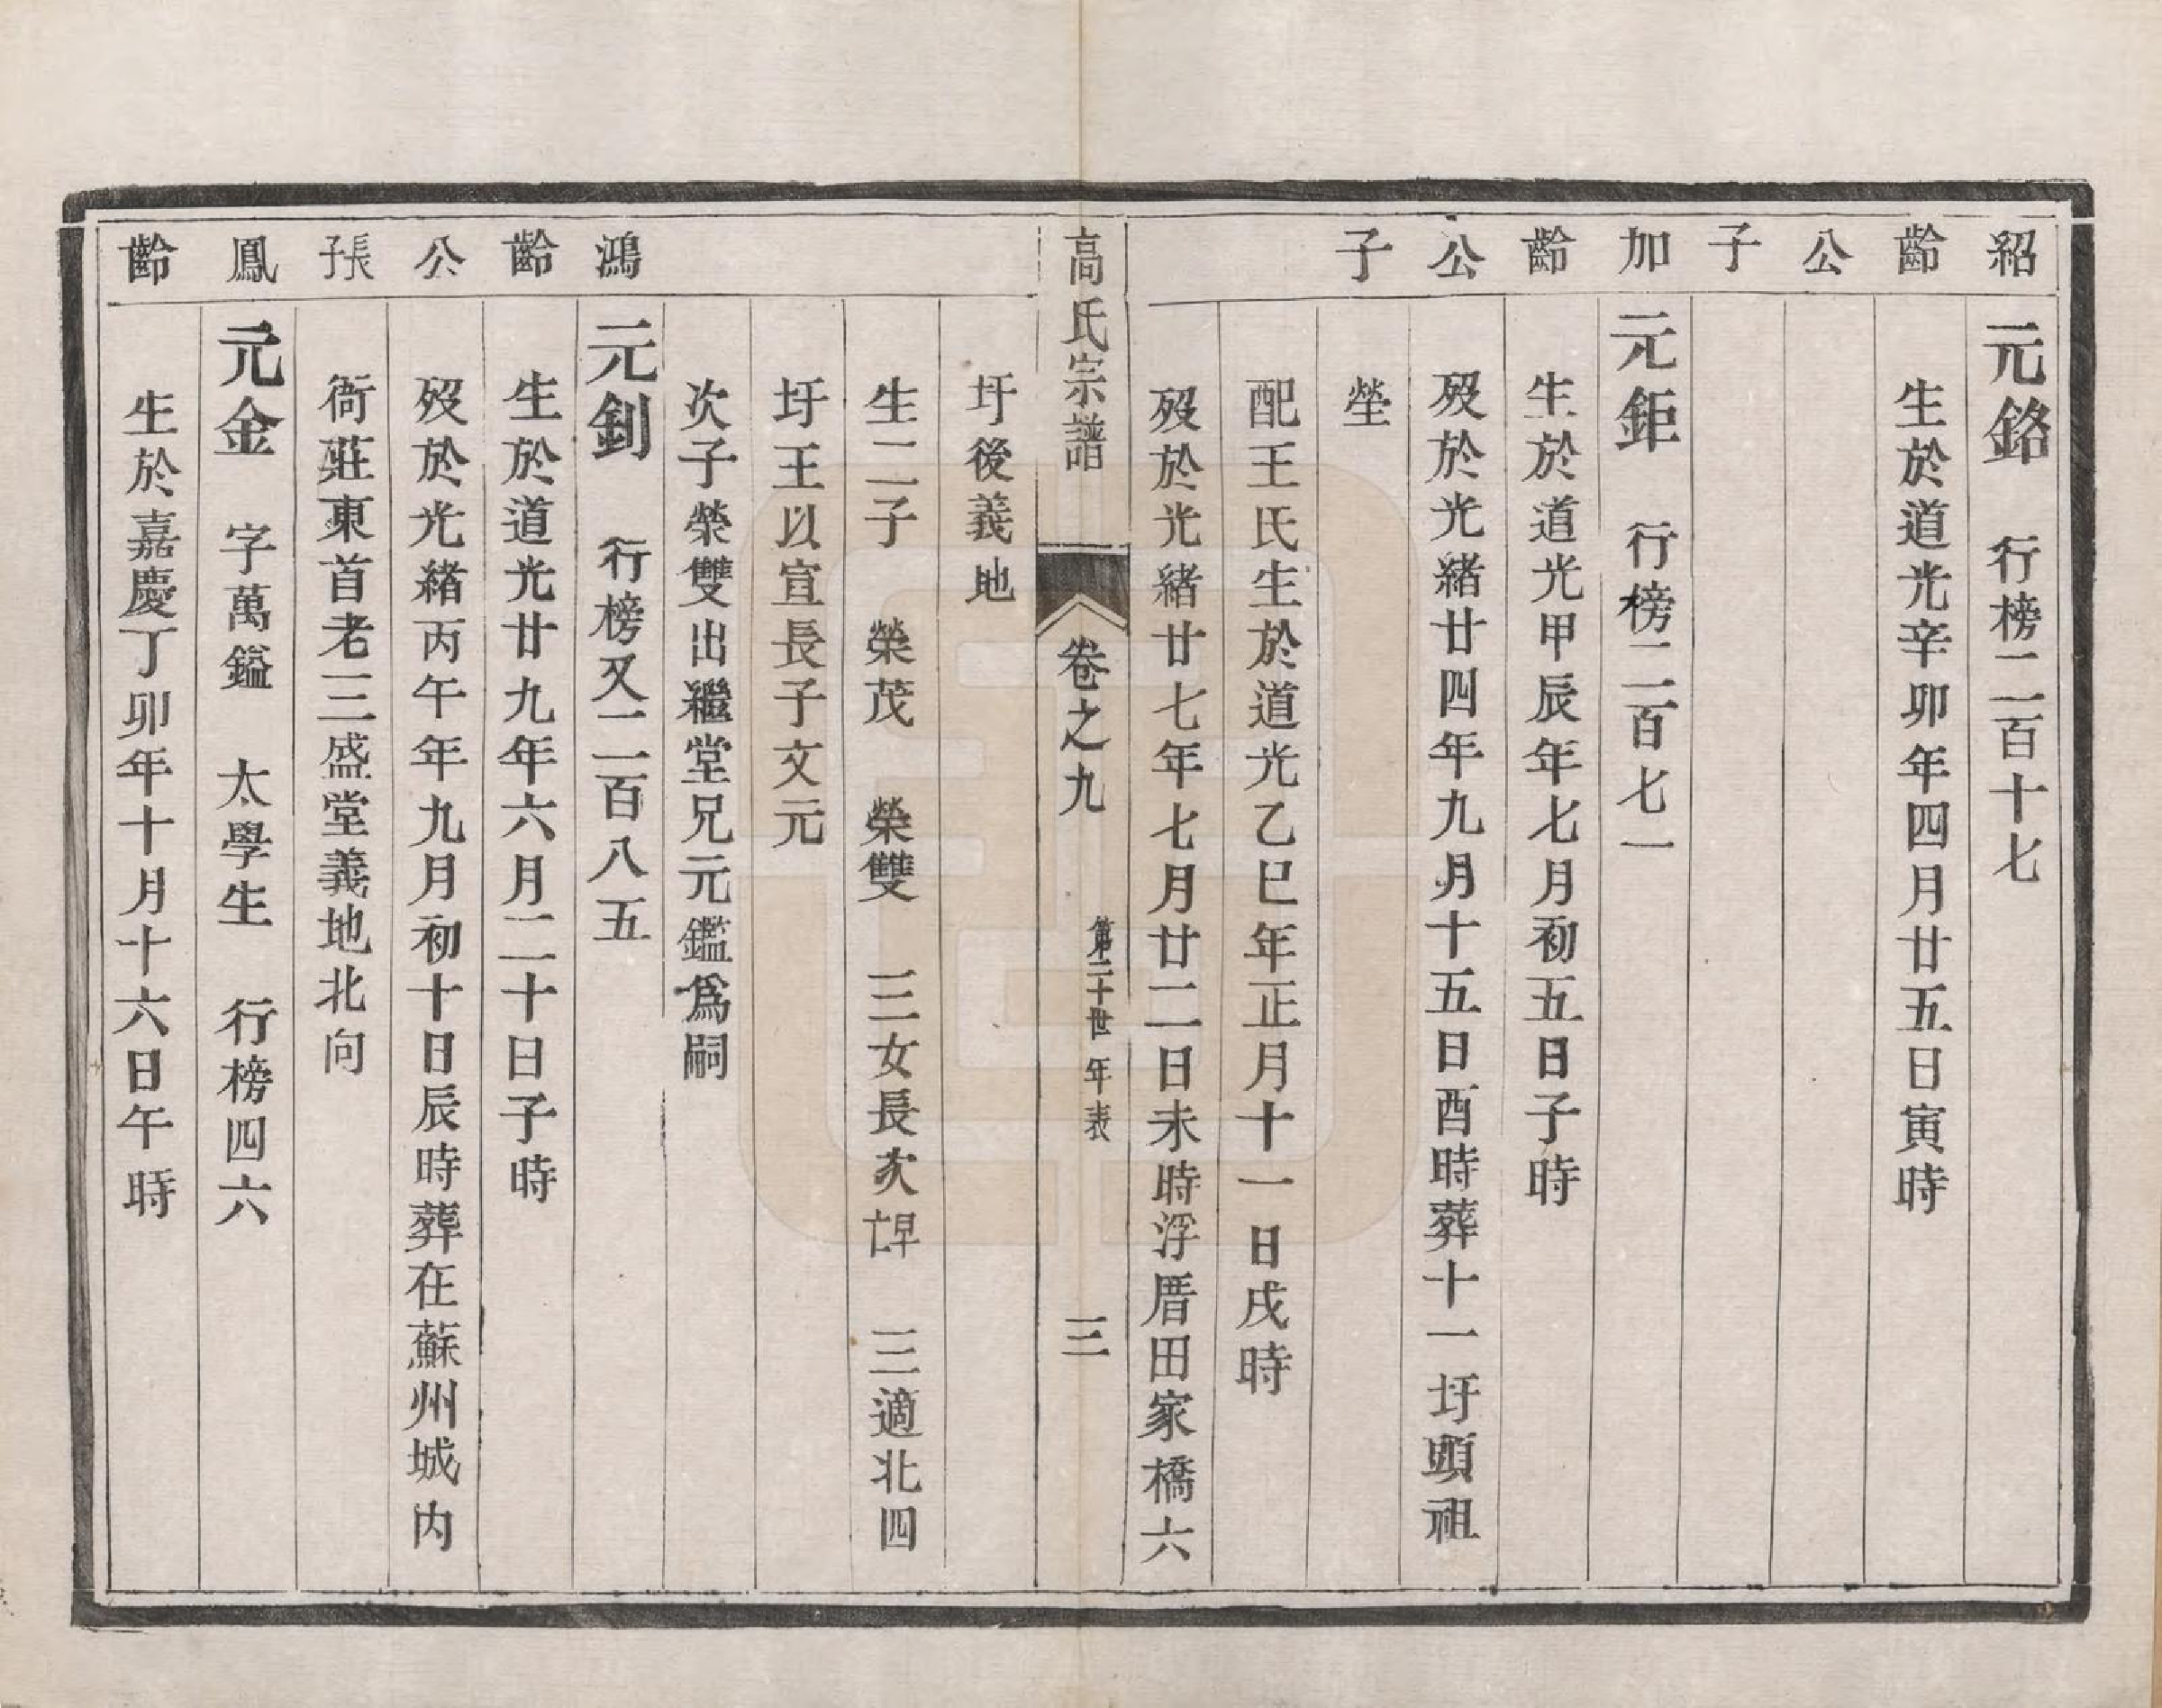 紹 元鉻 行榜二百十七
齡 生於道光辛卯年四月廿五日寅時
公
子
加 元鉅 行榜二百七一
齡 生於道光甲辰年七月初五日子時
公 歿於光緒廿四年九月十五日酉時葬十一圩頭祖
子 塋
配王氏生於道光乙巳年正月十一日戌時
歿於光緒廿七年七月廿二日未時浮厝田家橋六
高氏宗譜 卷之九 第二十世年表 三
圩後義地
生二子 榮茂 榮雙 三女長次早亡 三適北四
圩王以宣長子文元
次子榮雙出繼堂兄元鑑爲嗣
鴻 元釗 行榜又二百八五
齡 生於道光廿九年六月二十日子時
公 歿於光緒丙午年九月初十日辰時葬在蘇州城内
長子 衖莊東首老三盛堂義地北向
鳳 元金 字萬鎰 太學生 行榜四六
齡 生於嘉慶丁卯年十月十六日午時